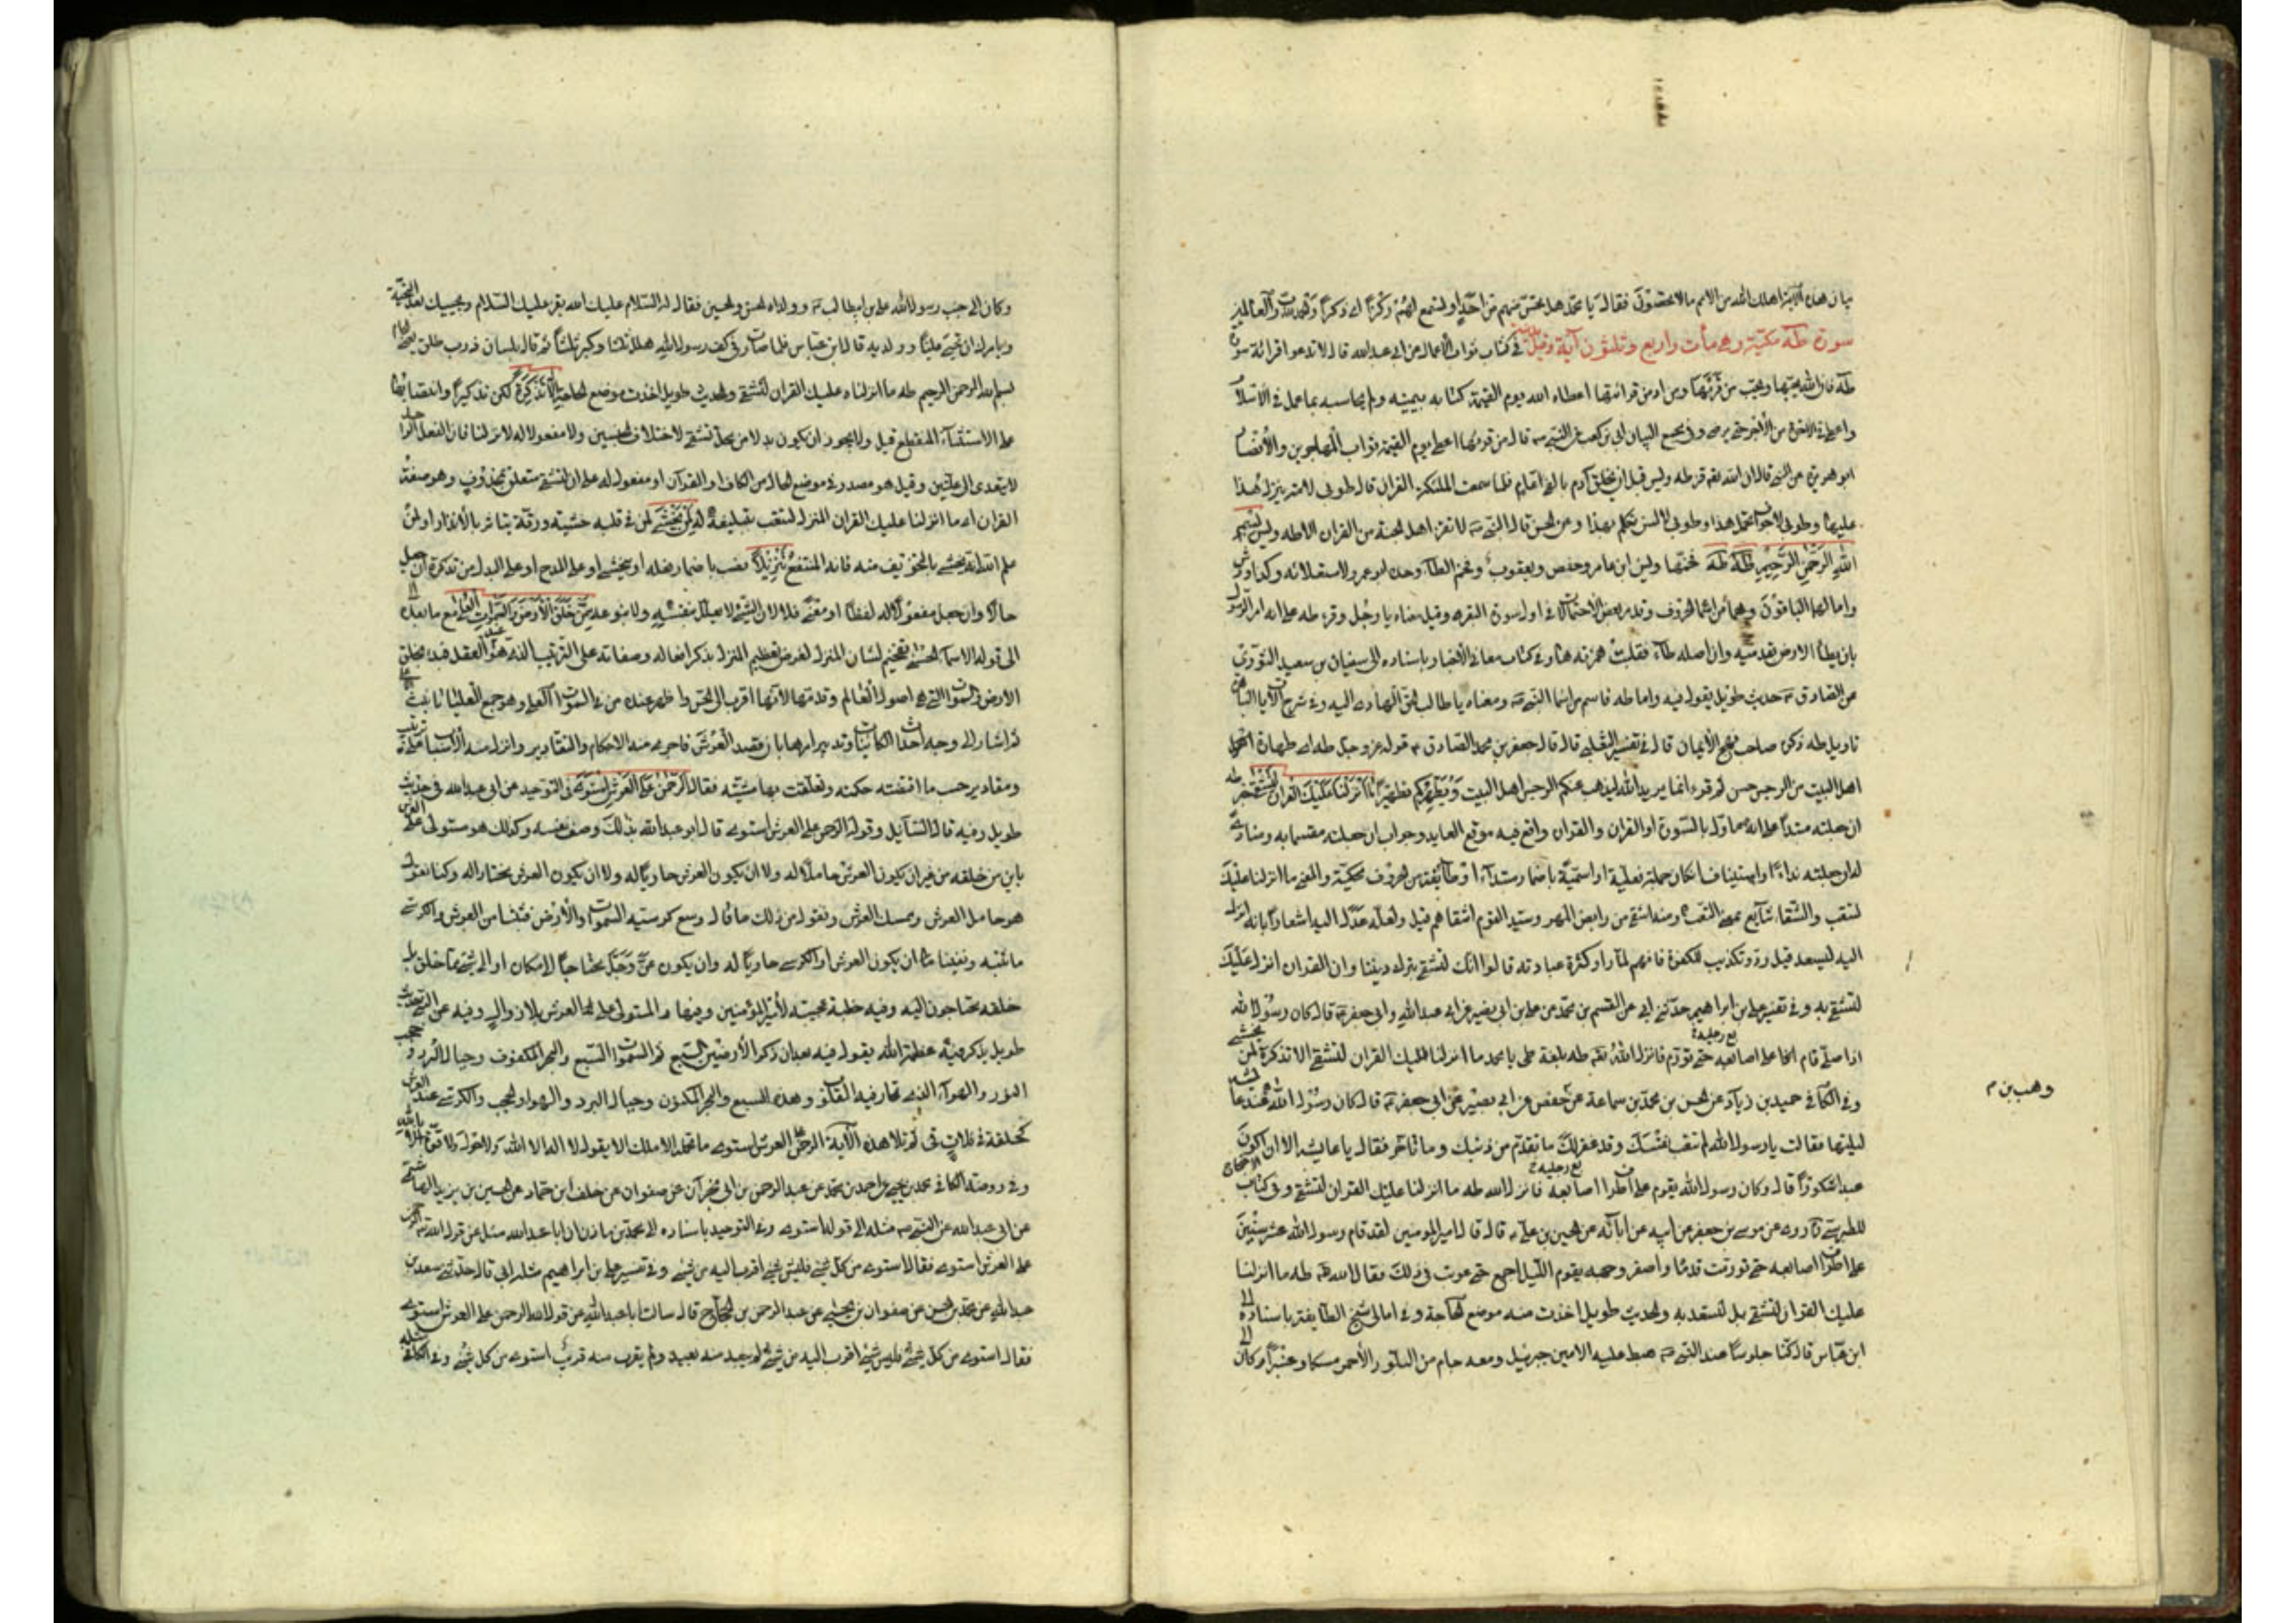 بان هذه الآية اهلك الله من الامم ما لا يحصون فقال يا محمد هل تحس منهم من احد او تسمع لهم ركزا اى ذكرا
سورة طه مكية وهى مأت واربع وثلثون آية وقيل فى كتاب ثواب الاعمال عن ابى عبد الله قال لا تدعوا قرائة سورة
طه فان الله يحبها ويحب من قرئها ومن ادمن قرائتها اعطاه الله يوم القيمة كتابه بيمينه ولم يحاسبه بما عمل فى الاسلام
واعطى فى الاخرة من الأجر حتى يرضى وفى مجمع البيان ابى بن كعب عن النبى قال من قرئها اعطى يوم القيمة ثواب المهاجرين والأنصار
ابو هريرة عن النبى قال ان الله تعالى قرء طه ويس قبل ان يخلق آدم بالفى عام فلما سمعت الملئكة القران قال طوبى لامة ينزل هذا
عليها وطوبى لاجواف تحمل هذا وطوبى لالسن تكلم بهذا وعن الحسن قال النبى لا تقرء اهل الجنة من القران الا طه ويس بسم
الله الرحمن الرحيم طه فخمها ابن عامر وحفص ويعقوب وفخم الطاء وحده ابو عمرو لاستعلائه وكذا ورش
وامالهما الباقون وهما من اسماء الحروف وقد مر بعض الاحتمالات فى اول سورة البقره وقيل معناه يا رجل وقرء طه على انه امر الرسول
بان يطأ الارض بقدميه وان اصله طأ فقلبت همزته هاء وفى كتاب معانى الأخبار باسناده الى سفيان بن سعيد الثورى
عن الصادق حديث طويل يقول فيه واما طه فاسم من اسماء النبى ومعناه يا طالب الحق الهادى اليه وفى شرح الآيات الباهرة
تاويل طه ذكره صاحب نهج الأيمان قال فى تفسير الثعلبى قال قال جعفر بن محمد الصادق قوله عز وجل طه اى طهارة
اهل البيت من الرجس ثم قرء انما يريد الله ليذهب عنكم الرجس اهل البيت ويطهركم تطهيرا ما انزلنا عليك القران لتشقى خبر طه
ان جعلته مبتدأ على انه مأول بالسورة او القران والقران واقع فيه موقع العايد وجواب ان جعلته مقسما به ومنادى
له ان جعلته نداء واستيناف ان كانت جملة فعلية او اسمية باضمار مبتداء او طائفة من الحروف محكية والمعنى ما انزلنا عليك
لتتعب والشقاء شايع بمعنى التعب ومنه اشقى من رايض المهر وسيد القوم اشقاهم قيل ولعله عدل اليه اشعارا بانه انزل
اليه ليسعد قيل رد وتكذيب للكفرة فانهم لما راوا كثرة عبادته قالوا انك لتشقى بترك ديننا وان القران انزل عليك
لتشقى به وفى تفسير على بن ابراهيم حدثنى ابى عن القسم بن محمد عن على عن ابى بصير عن ابى عبد الله وابى جعفر قال كان رسول الله
اذا صلى قام على اصابع رجليه حتى تورم فانزل الله طه بلغة طى يا محمد ما انزلنا عليك القران لتشقى الا تذكرة لمن يخشى
وفى الكافى حميد بن زياد عن الحسن بن محمد بن سماعة عن وهيب بن حفص عن ابى بصير عن ابى جعفر قال كان رسول الله عند عايشه
ليلتها فقالت يا رسول الله لم تتعب نفسك وقد غفر لك ما تقدم من ذنبك وما تأخر فقال يا عايشه الا اكون
عبدا شكورا قال وكان رسول الله يقوم على اطراف اصابع رجليه فانزل الله طه ما انزلنا عليك القران لتشقى وفى كتاب الاحتجاج
للطبرسى روى عن موسى بن جعفر عن ابيه عن آبائه عن الحسين بن على قال قال امير المومنين لقد قام رسول الله عشر سنين
على اطراف اصابعه حتى تورمت قدماه واصفر وجهه يقوم الليل اجمع حتى عوتب فى ذلك فقال الله طه ما انزلنا
عليك القران لتشقى بل لتسعد به والحديث طويل اخذت منه موضع الحاجة وفى امالى شيخ الطايفة باسناده الى
ابن عباس قال كنا جلوسا عند النبى هبط عليه الامين جبرئيل ومعه جام من البلور الأحمر مسكا وعنبرا وكان
وهب بن م
وكان الى جنب رسول الله على بن ابيطالب وولداه الحسن والحسين فقال له السلام عليك الله يقرء عليك السلام ويحييك بهذه التحية
ويامرك ان تحيى عليا وولديه قال ابن عباس فلما صارت فى كف رسول الله هلل ثلثا وكبر ثلثا ثم قال بلسان ذرب طلق
بسم الله الرحمن الرحيم طه ما انزلنا عليك القران لتشقى والحديث طويل اخذت موضع الحاجة الا تذكرة لكن تذكيرا وانتصابها
على الاستثناء المنقطع قيل ولا يجوز ان يكون بدلا من محل تشقى لاختلاف الجنسين ولا مفعولا له لانزلنا فان الفعل الواحد
لا يتعدى الى علتين وقيل هو مصدر فى موضع الحال من الكاف او القرآن او مفعول له على ان لتشقى متعلق بمحذوف هو صفة
القران اى ما انزلنا عليك القران المنزل لتتعب بتبليغه الا تذكرة لمن يخشى لمن فى قلبه خشية ورقة يتاثر بالانذار او لمن
علم الله انه يخشى بالتخويف منه فانه المنتفع تنزيلا نصب باضمار فعله او بيخشى او على المدح او على البدل من تذكرة ان جعل
حالا وان جعل مفعولا له لفظا او معنى فلا لان الشئ لا يعلل بنفسه ولا بنوعه ممن خلق الارض والسموات العلى مع ما بعده
الى قوله الاسماء الحسنى تفخيم لشان المنزل لعرض تعظيم المنزل بذكر افعاله وصفاته على الترتيب الذى هو عند العقل فبدء بخلق
الارض والسموات التى هى اصول العالم وقدم الارض لانها اقرب الى الحس واظهر عنده من السموات العلى وهو جمع العليا تانيث الاعلى
ثم اشار الى وجه احداث الكاينات وتدبير امرها بان قصد العرش فاجرى منه الاحكام والتقادير وانزل منه الاسباب على ترتيب
ومقادير حسب ما اقتضته حكمته وتعلقت بها مشيته فقال الرحمن على العرش استوى فى التوحيد عن ابى عبد الله فى حديث
طويل وفيه قال السائل وقوله الرحمن على العرش استوى قال ابو عبد الله بذلك وصف نفسه وكذلك هو مستولى على العرش
باين من خلقه من غير ان يكون العرش حاملا له ولا ان يكون العرش حاويا له ولا ان يكون العرش محتازا له ولكنا نقول
هو حامل العرش وممسك العرش ونقول من ذلك ما قال وسع كرسيه السموات والأرض فثبتنا من العرش والكرسى
ما ثبته ونفينا ان يكون العرش او الكرسى حاويا له وان يكون عز وجل محتاجا الى مكان او الى شئ مما خلق بل
خلقه محتاجون اليه وفيه خطبة عجيبة لأمير المؤمنين وفيها والمستولى على العرش بلا زوال وفيه عن النبى حديث
طويل يذكر فيه عظمة الله يقول فيه بعد ان ذكر الأرضين السبع ثم السموات السبع والبحر المكفوف وجبال البرد وحجب
النور والهواء الذى تحار فيه القلوب وهذه السبع والبحر المكفوف وجبال البرد والهواء والحجب والكرسى عند العرش
كحلقة فى فلاة قى ثم تلا هذه الآية الرحمن على العرش استوى ما تحمله الاملاك الا بقول لا اله الا الله ولا حول ولا قوة الا بالله
وفى روضة الكافى محمد بن يحيى عن احمد بن محمد عن عبد الرحمن بن ابى نجران عن صفوان عن خلف بن حماد عن الحسين بن يزيد الهاشمى
عن ابى عبد الله عن النبى مثله الى قوله استوى وفى التوحيد باسناده الى محمد بن مازن ان ابا عبد الله سئل عن قول الله الرحمن
على العرش استوى فقال استوى من كل شئ فليس شئ اقرب اليه من شئ وفى تفسير على بن ابراهيم مثله ابى قال حدثنى سعد بن
عبد الله عن محمد بن الحسن عن صفوان بن يحيى عن عبد الرحمن بن الحجاج قال سالت ابا عبد الله عن قول الله الرحمن على العرش استوى
فقال استوى من كل شئ فليس شئ اقرب اليه من شئ لم يبعد منه بعيد ولم يقرب منه قريب استوى من كل شئ وفى الكافى مثله